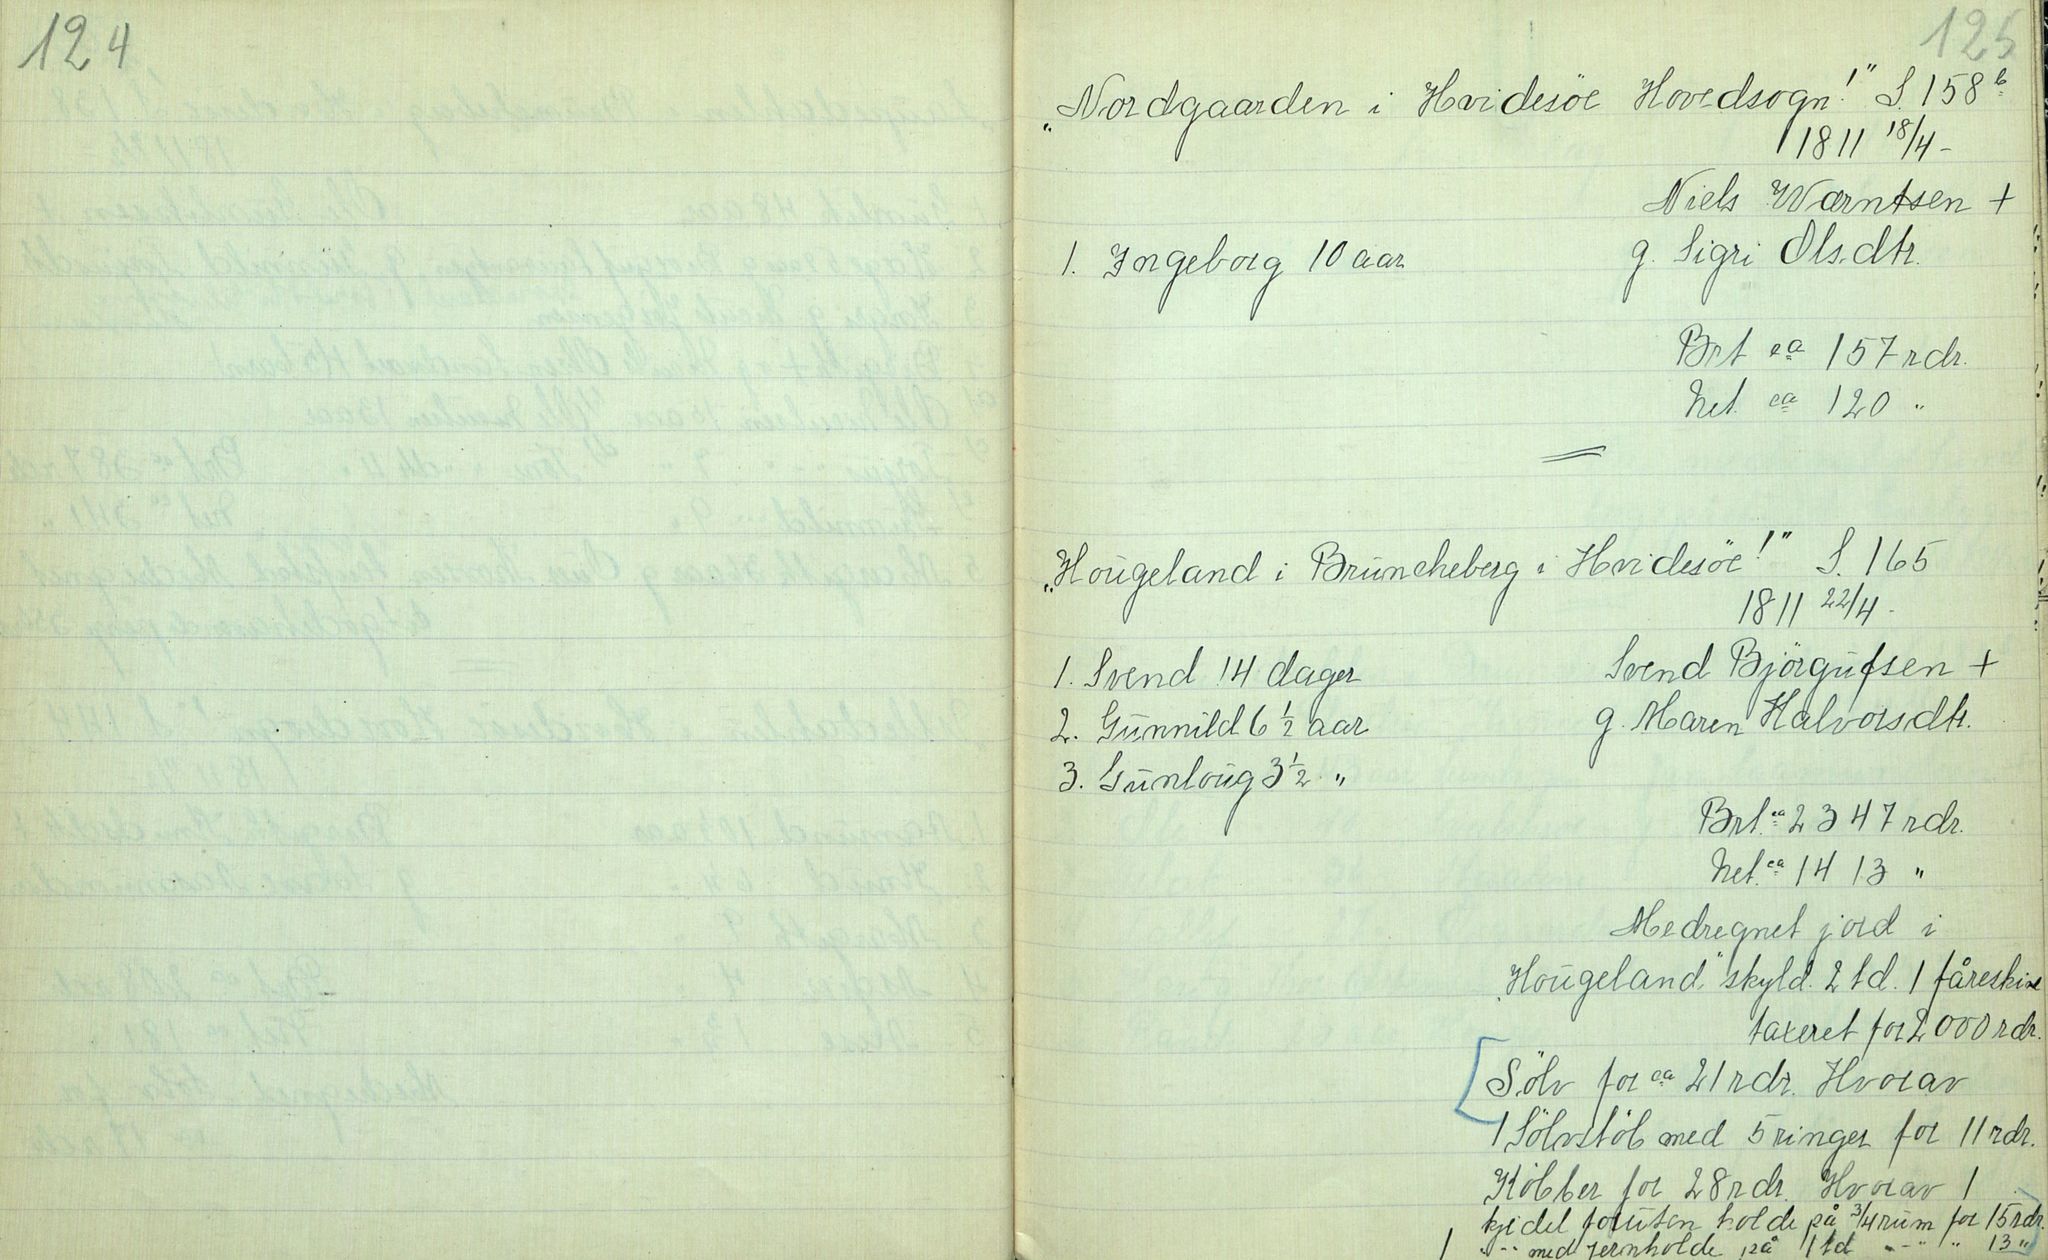 124
125
„Nordgaarden i Hvidesöe Hovedsogn!" S. 158 b
1811 18/4 -
Niels Wærntsen +
1. Ingeborg 10 aar
g. Sigri Olsdtr.
Brt ca 157 rdr.
Net. ca 120 "
„Hoŭgeland i Brŭncheberg i Hvidesöe!" S. 165
1811 22/4 -
1. Svend 14 dager
Svend Björgŭfsen +
2. Gŭnnild 6 1/2 aar
g. Maren Halvorsdtr.
3. Gŭnloŭg 3 1/2 "
Brt. ca 2347 rdr.
Net. ca 1413 "
Medregnet jord i
„Hoŭgeland" skyld. 2 td. 1 fåreskin
taxeret for 2000 rdr.
Sölv for ca 21 rdr. Hvorav
1 Sölvstöb med 5 ringer for 11 rdr.
Köbber for 28 rdr. Hvorav 1
kjedel forŭten holde på 3/4 rŭm for 15 rdr.
1 "-" med jernholde på 1 td "-" " 13 "